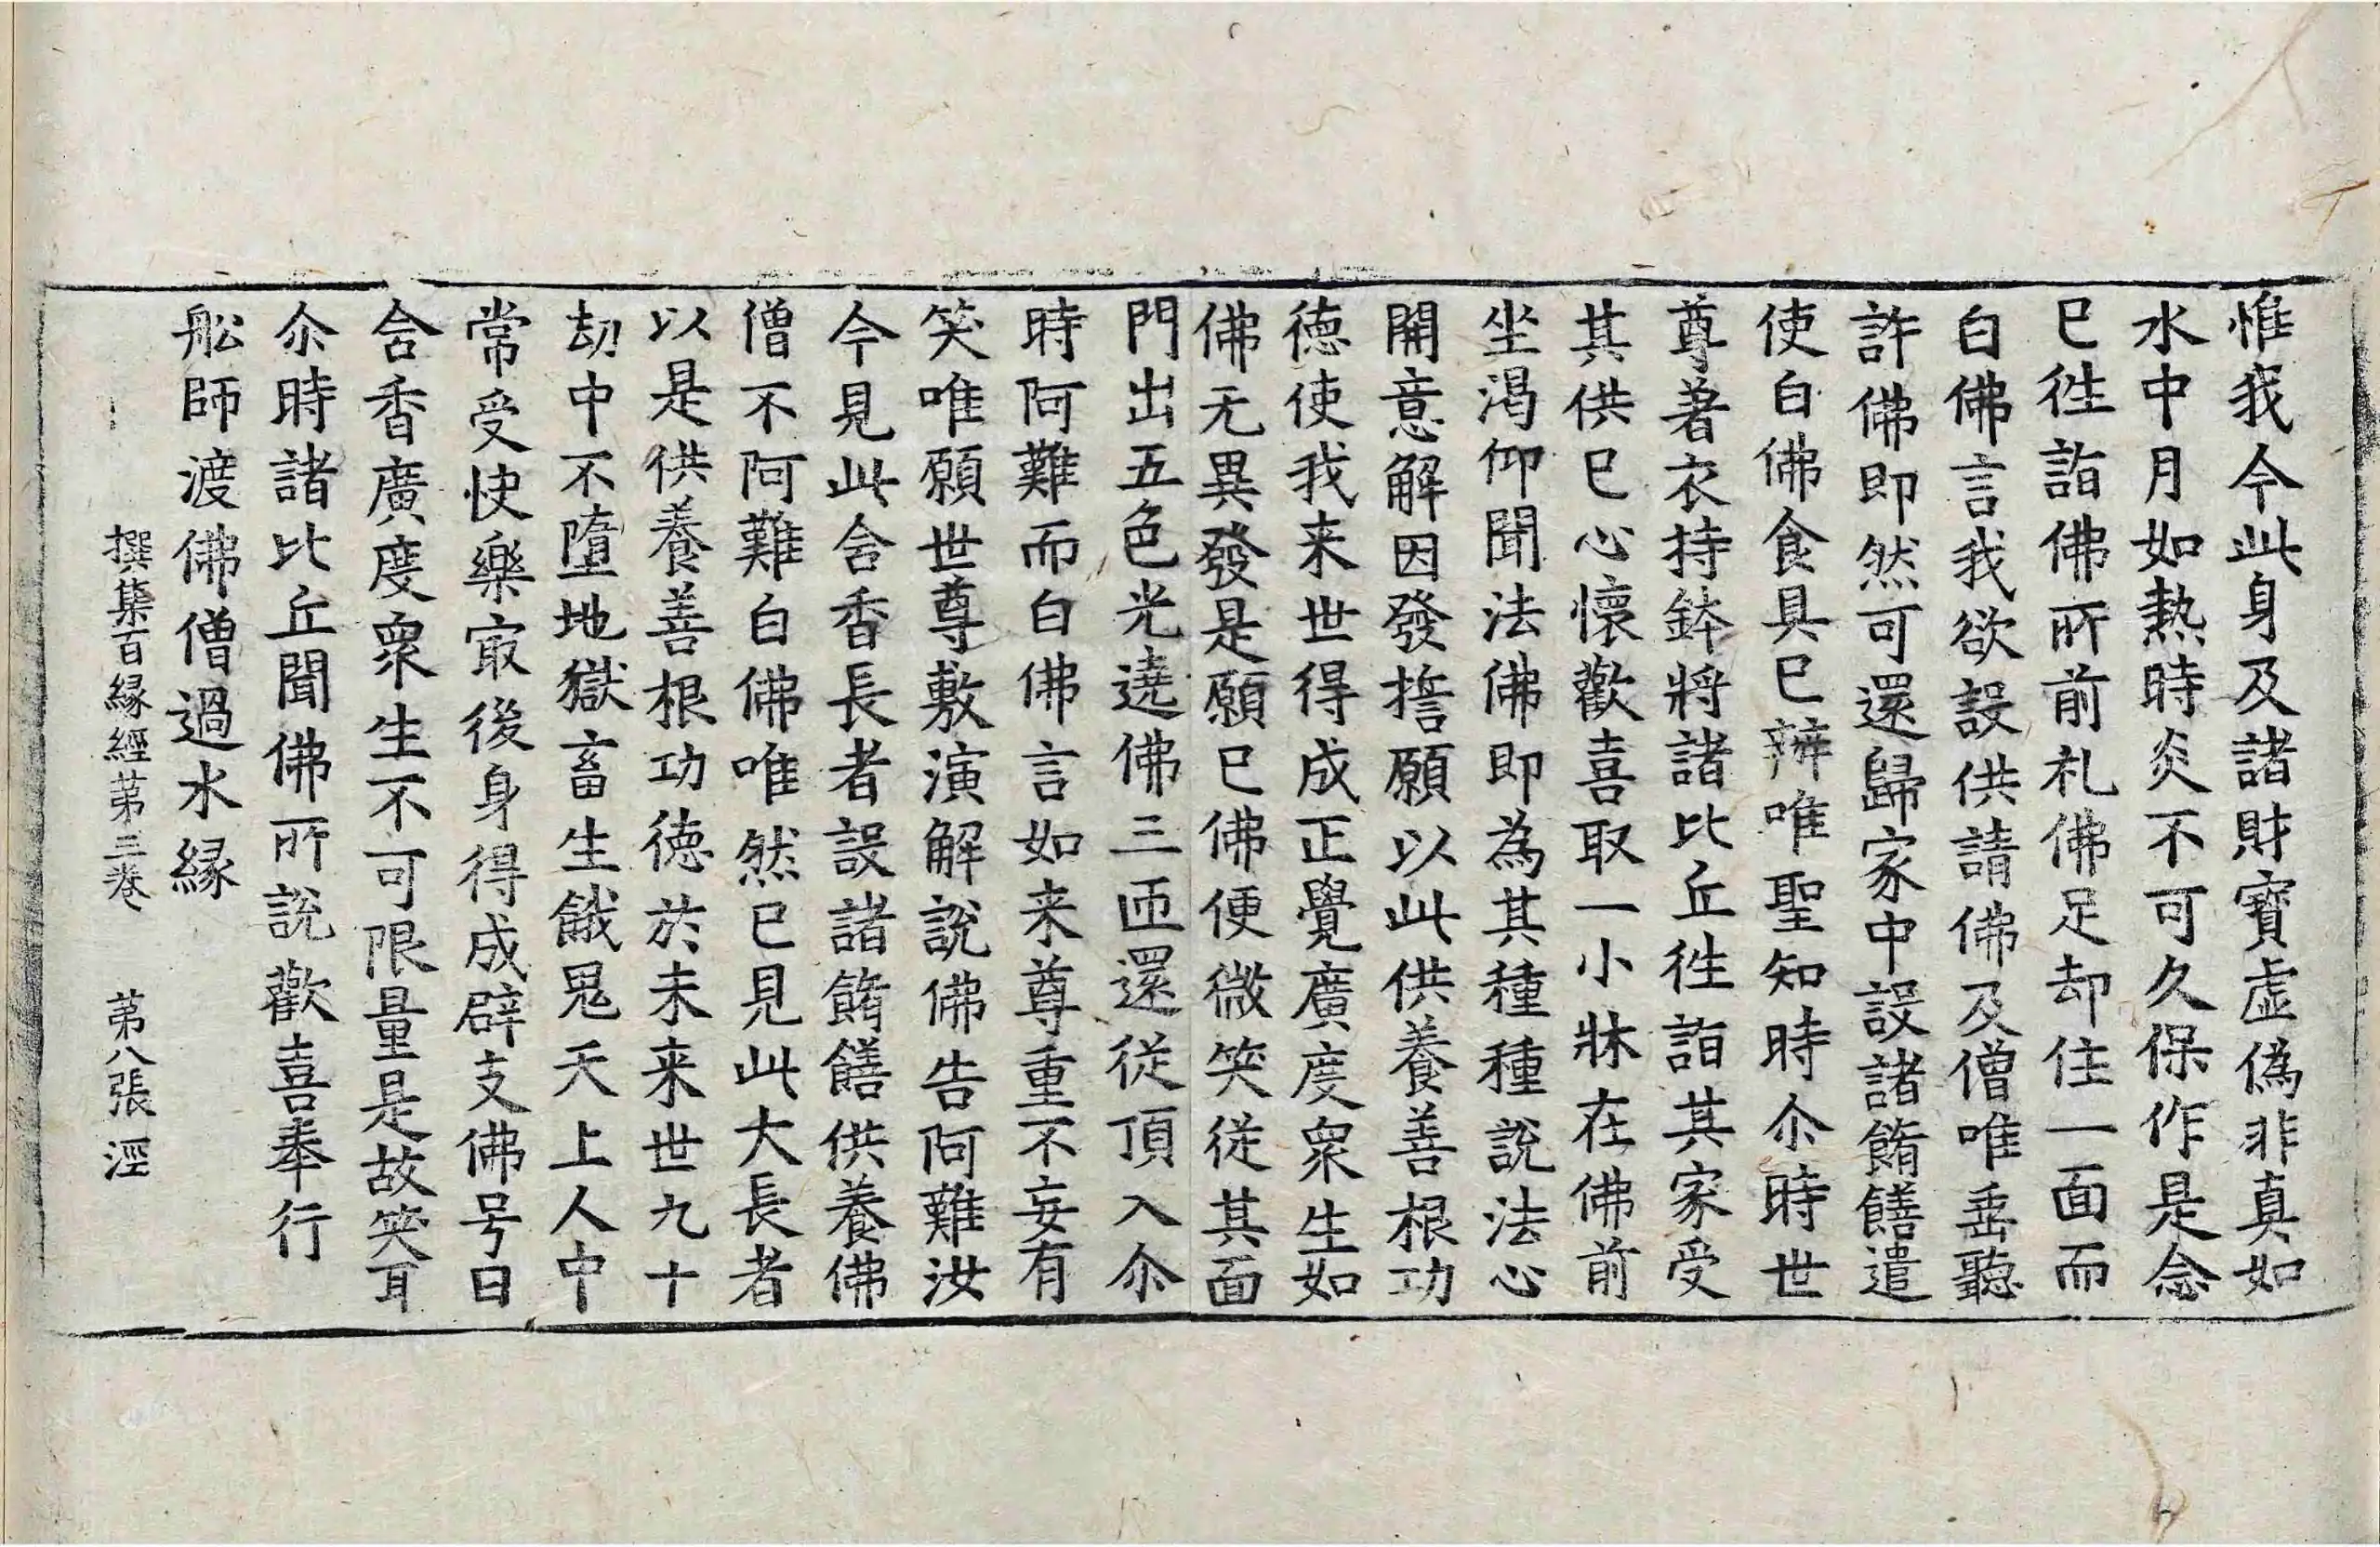 惟我今此身及諸財寶虛偽非真如
水中月如熱時炎不可久保作是念
已徃詣佛所前礼佛足却住一面而
白佛言我欲設供請佛及僧唯垂聽
許佛即然可還歸家中設諸餚饍遣
使白佛食具已辦唯聖知時尒時世
尊著衣持鉢將諸比丘徃詣其家受
其供已心懷歡喜取一小牀在佛前
坐渴仰聞法佛即為其種種說法心
開意解因發誓願以此供養善根功
德使我来世得成正覺廣度衆生如
佛无異發是願已佛便微笑従其面
門出五色光遶佛三匝還従頂入尒
時阿難而白佛言如来尊重不妄有
笑唯願世尊敷演解說佛告阿難汝
今見此含香長者設諸餚饍供養佛
僧不阿難白佛唯然已見此大長者
以是供養善根功德於未来世九十
劫中不墮地獄畜生餓鬼天上人中
常受快樂寂後身得成辟支佛号曰
含香廣度衆生不可限量是故笑耳
尒時諸比丘聞佛所說歡喜奉行
舩師渡佛僧過水縁
撰集百縁經苐三卷 苐八張 涇